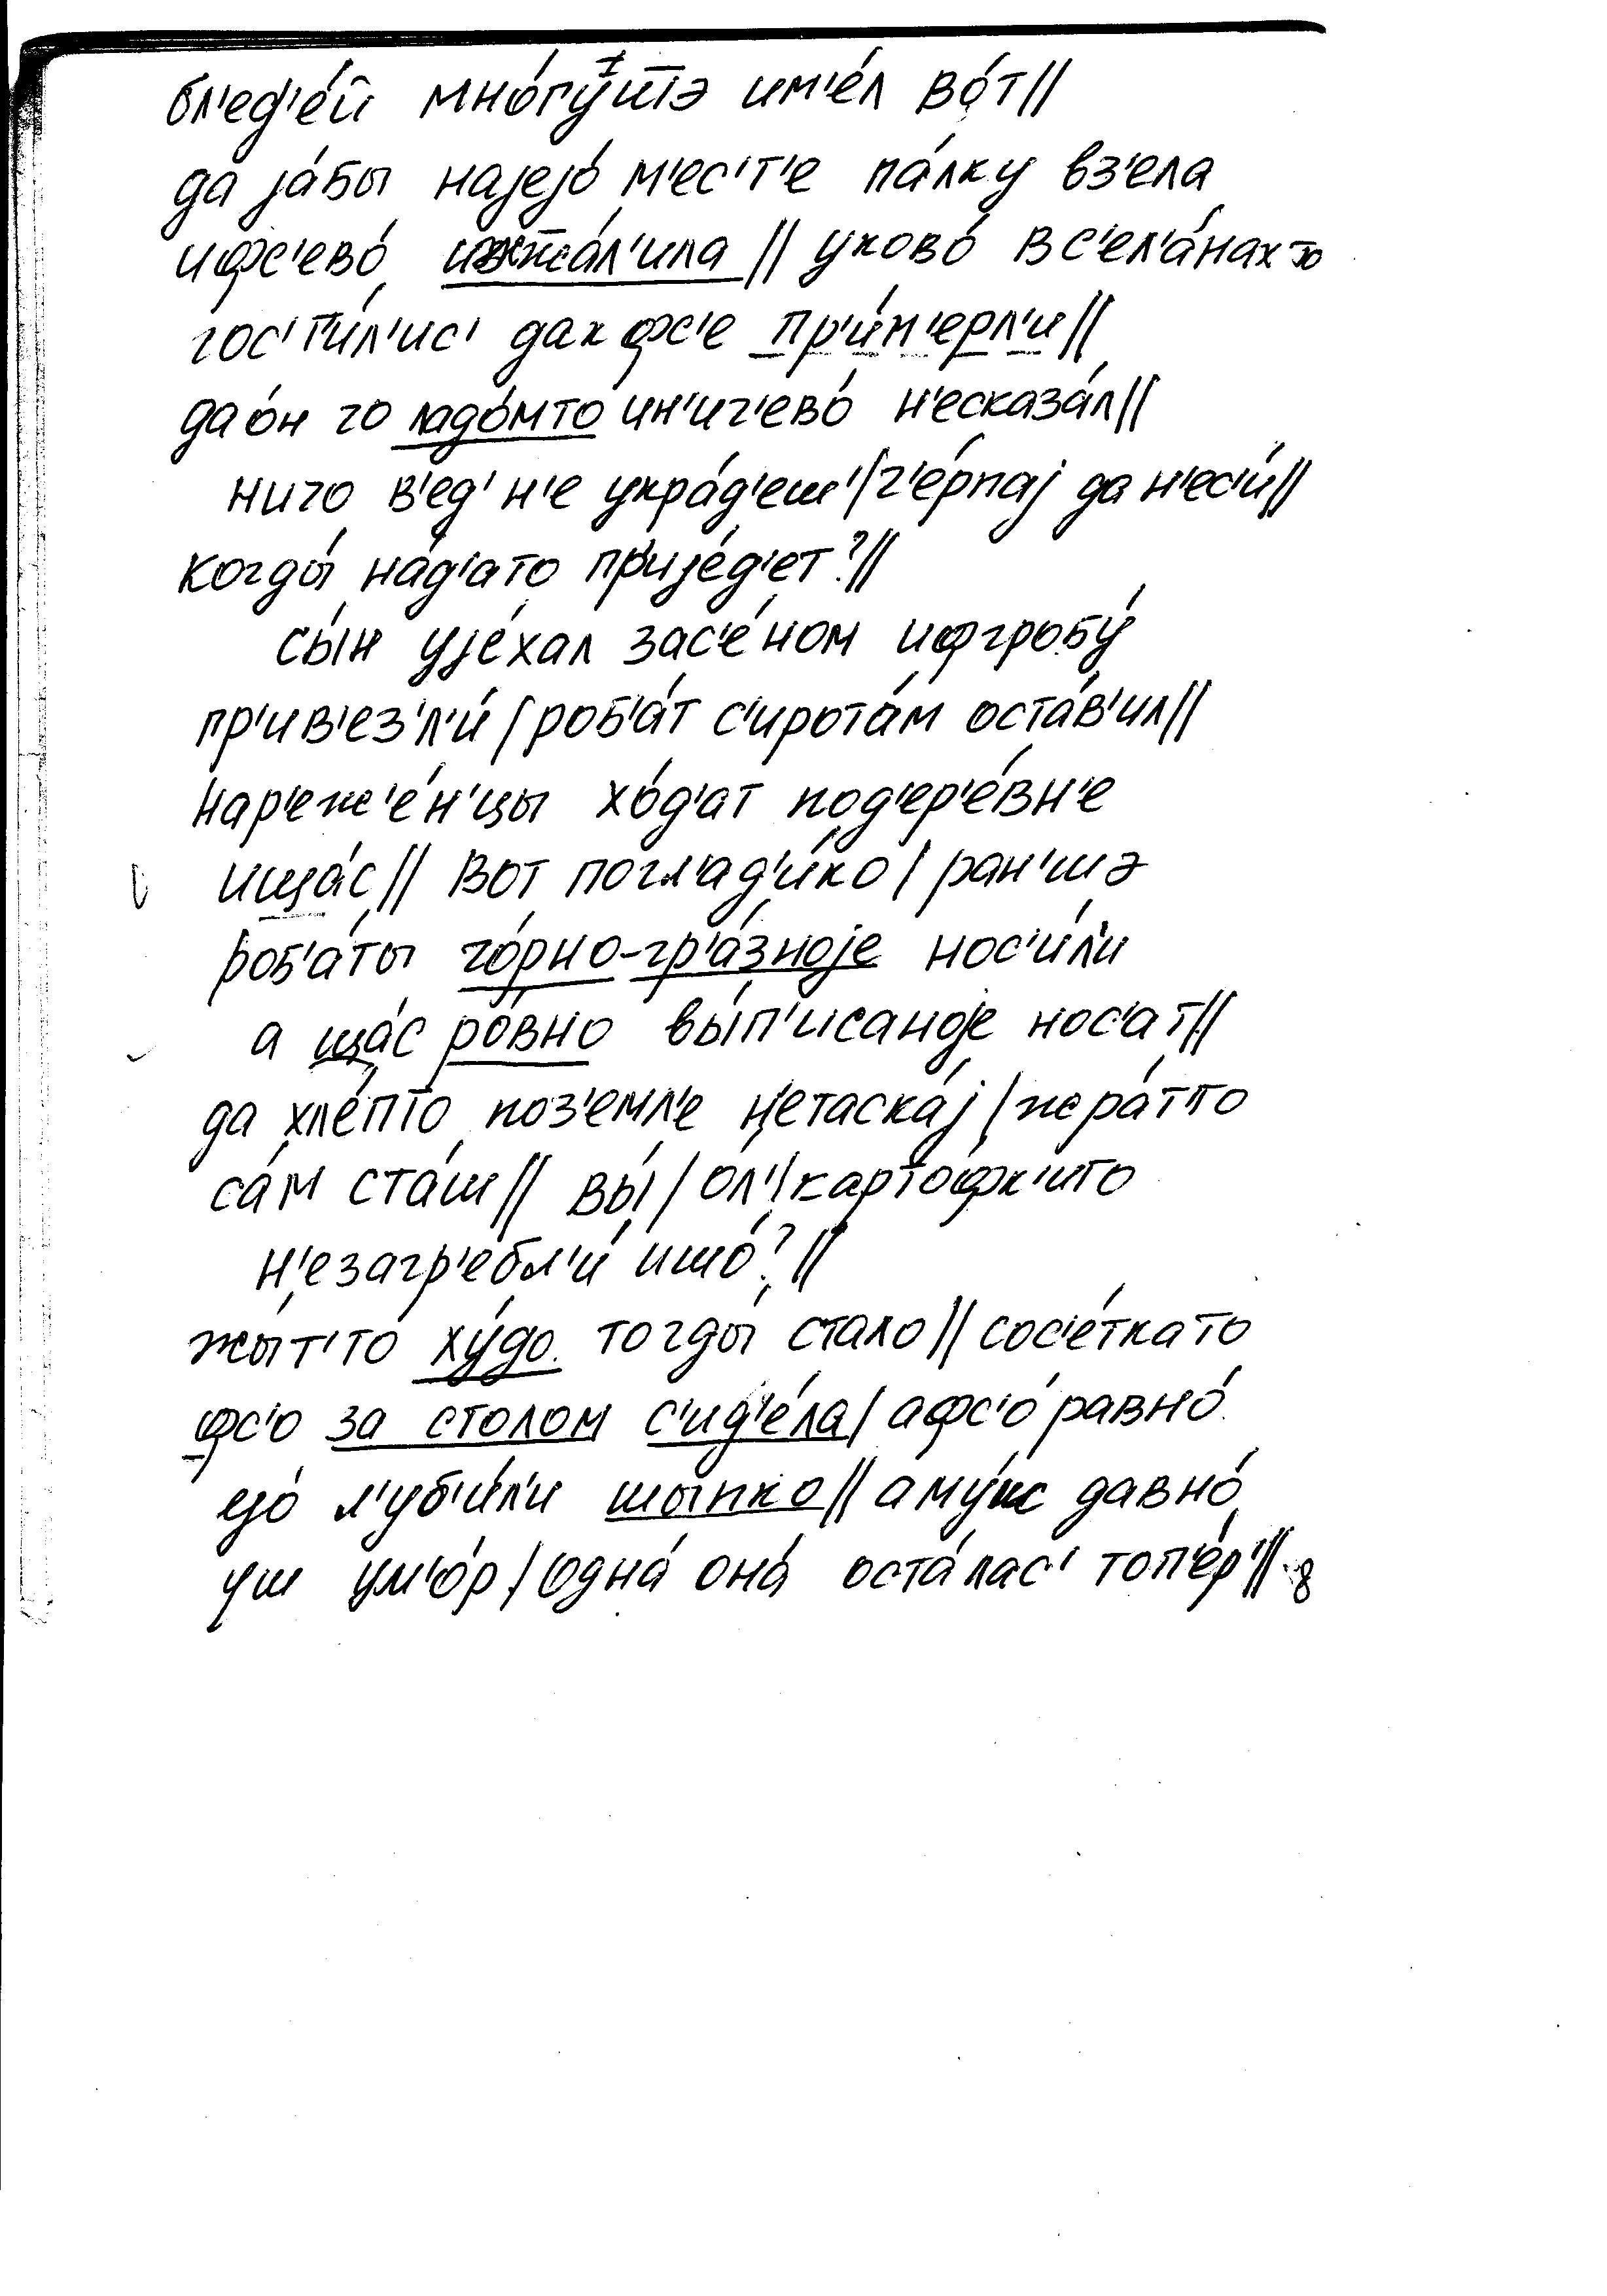 бл'ед'е́й мно́гу́штэ им'е́л во́т//
да ја́бы најејо́ м'ес'т'е па́лку вз'ела
ифс'ево́ ижжа́л'ила // уково́ в с'ел'а́нахто
гос'т'и́л'ис' дак фс'е пр'и́м'ерл'и//
дао́н чо ладо́мто ин'ич'ево́ н'есказа́л//
ничо в'ед' н'е укра́д'еш'/ч'е́рпај да н'ес'и́//
когды́ на́д'ато пр'ије́д'ет?//
сы́н ује́хал зас'е́ном ифгробу́
пр'ив'ез'л'и́ / роб'а́т с'ирота́м оста́в'ил//
нар'еж'е́н'цы хо́д'ат под'ер'е́вн'е
ища́с // вот погл'ад'и́ко / ран'шэ
роб'а́ты чо́рно-гр'а́зноје нос'и́л'и
а ща́с ро́вно вы́п'исаноје нос'ат//
да хле́пто поз'емл'е н'етаска́ј / жра́тто
са́м ста́ш // вы́ / ол' / карто́фк'ито
н'езагр'ебл'и́ ишо́? //
жы́т'то ху́до тогды́ стало // сос'е́ткато
фс'о за столом с'ид'е́ла / афс'о́ равно́
јејо́ л'уб'и́л'и шы́пко // аму́ж давно́
уш ум'о́р / одна́ она́ оста́лас' топ'е́р' //